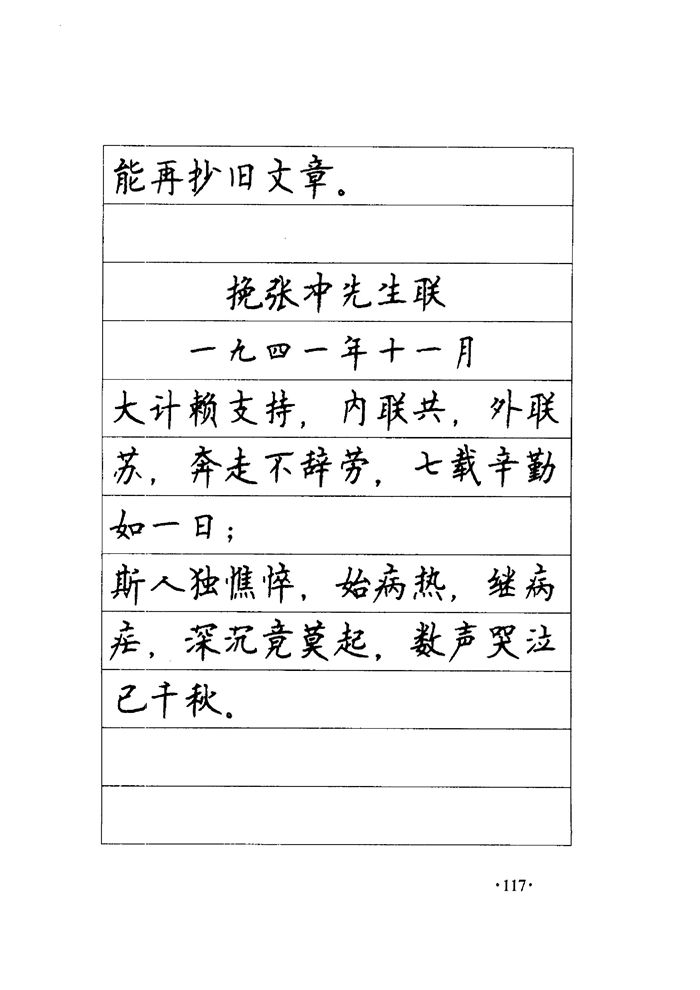 能再抄旧文章。
挽张冲先生联
一九四一年十一月
大计赖支持，内联共，外联
苏，奔走不辞劳，七载辛勤
如一日；
斯人独憔悴，始病热，继病
疟，深沉竟莫起，数声哭泣
已千秋。
·117·